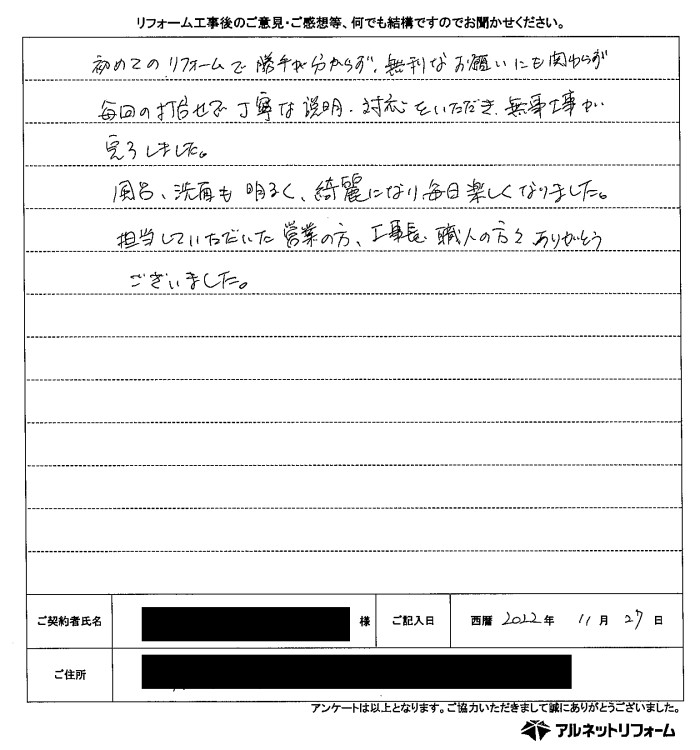 リフォーム工事後のご意見・ご感想等、何でも結構ですのでお聞かせください。
初めてのリフォームで勝手が分からず、無利なお願いにも関わらず
毎回の打合せで丁寧な説明・対応をいただき、無事工事が
完了しました。
風呂、洗面も明るく、綺麗になり毎日楽しくなりました。
担当していただいた営業の方、工事長、職人の方々ありがとう
ございました。
ご契約者氏名 様 ご記入日 西暦 2022年 11月 27日
ご住所
アンケートは以上となります。ご協力いただきまして誠にありがとうございました。
アルネットリフォーム